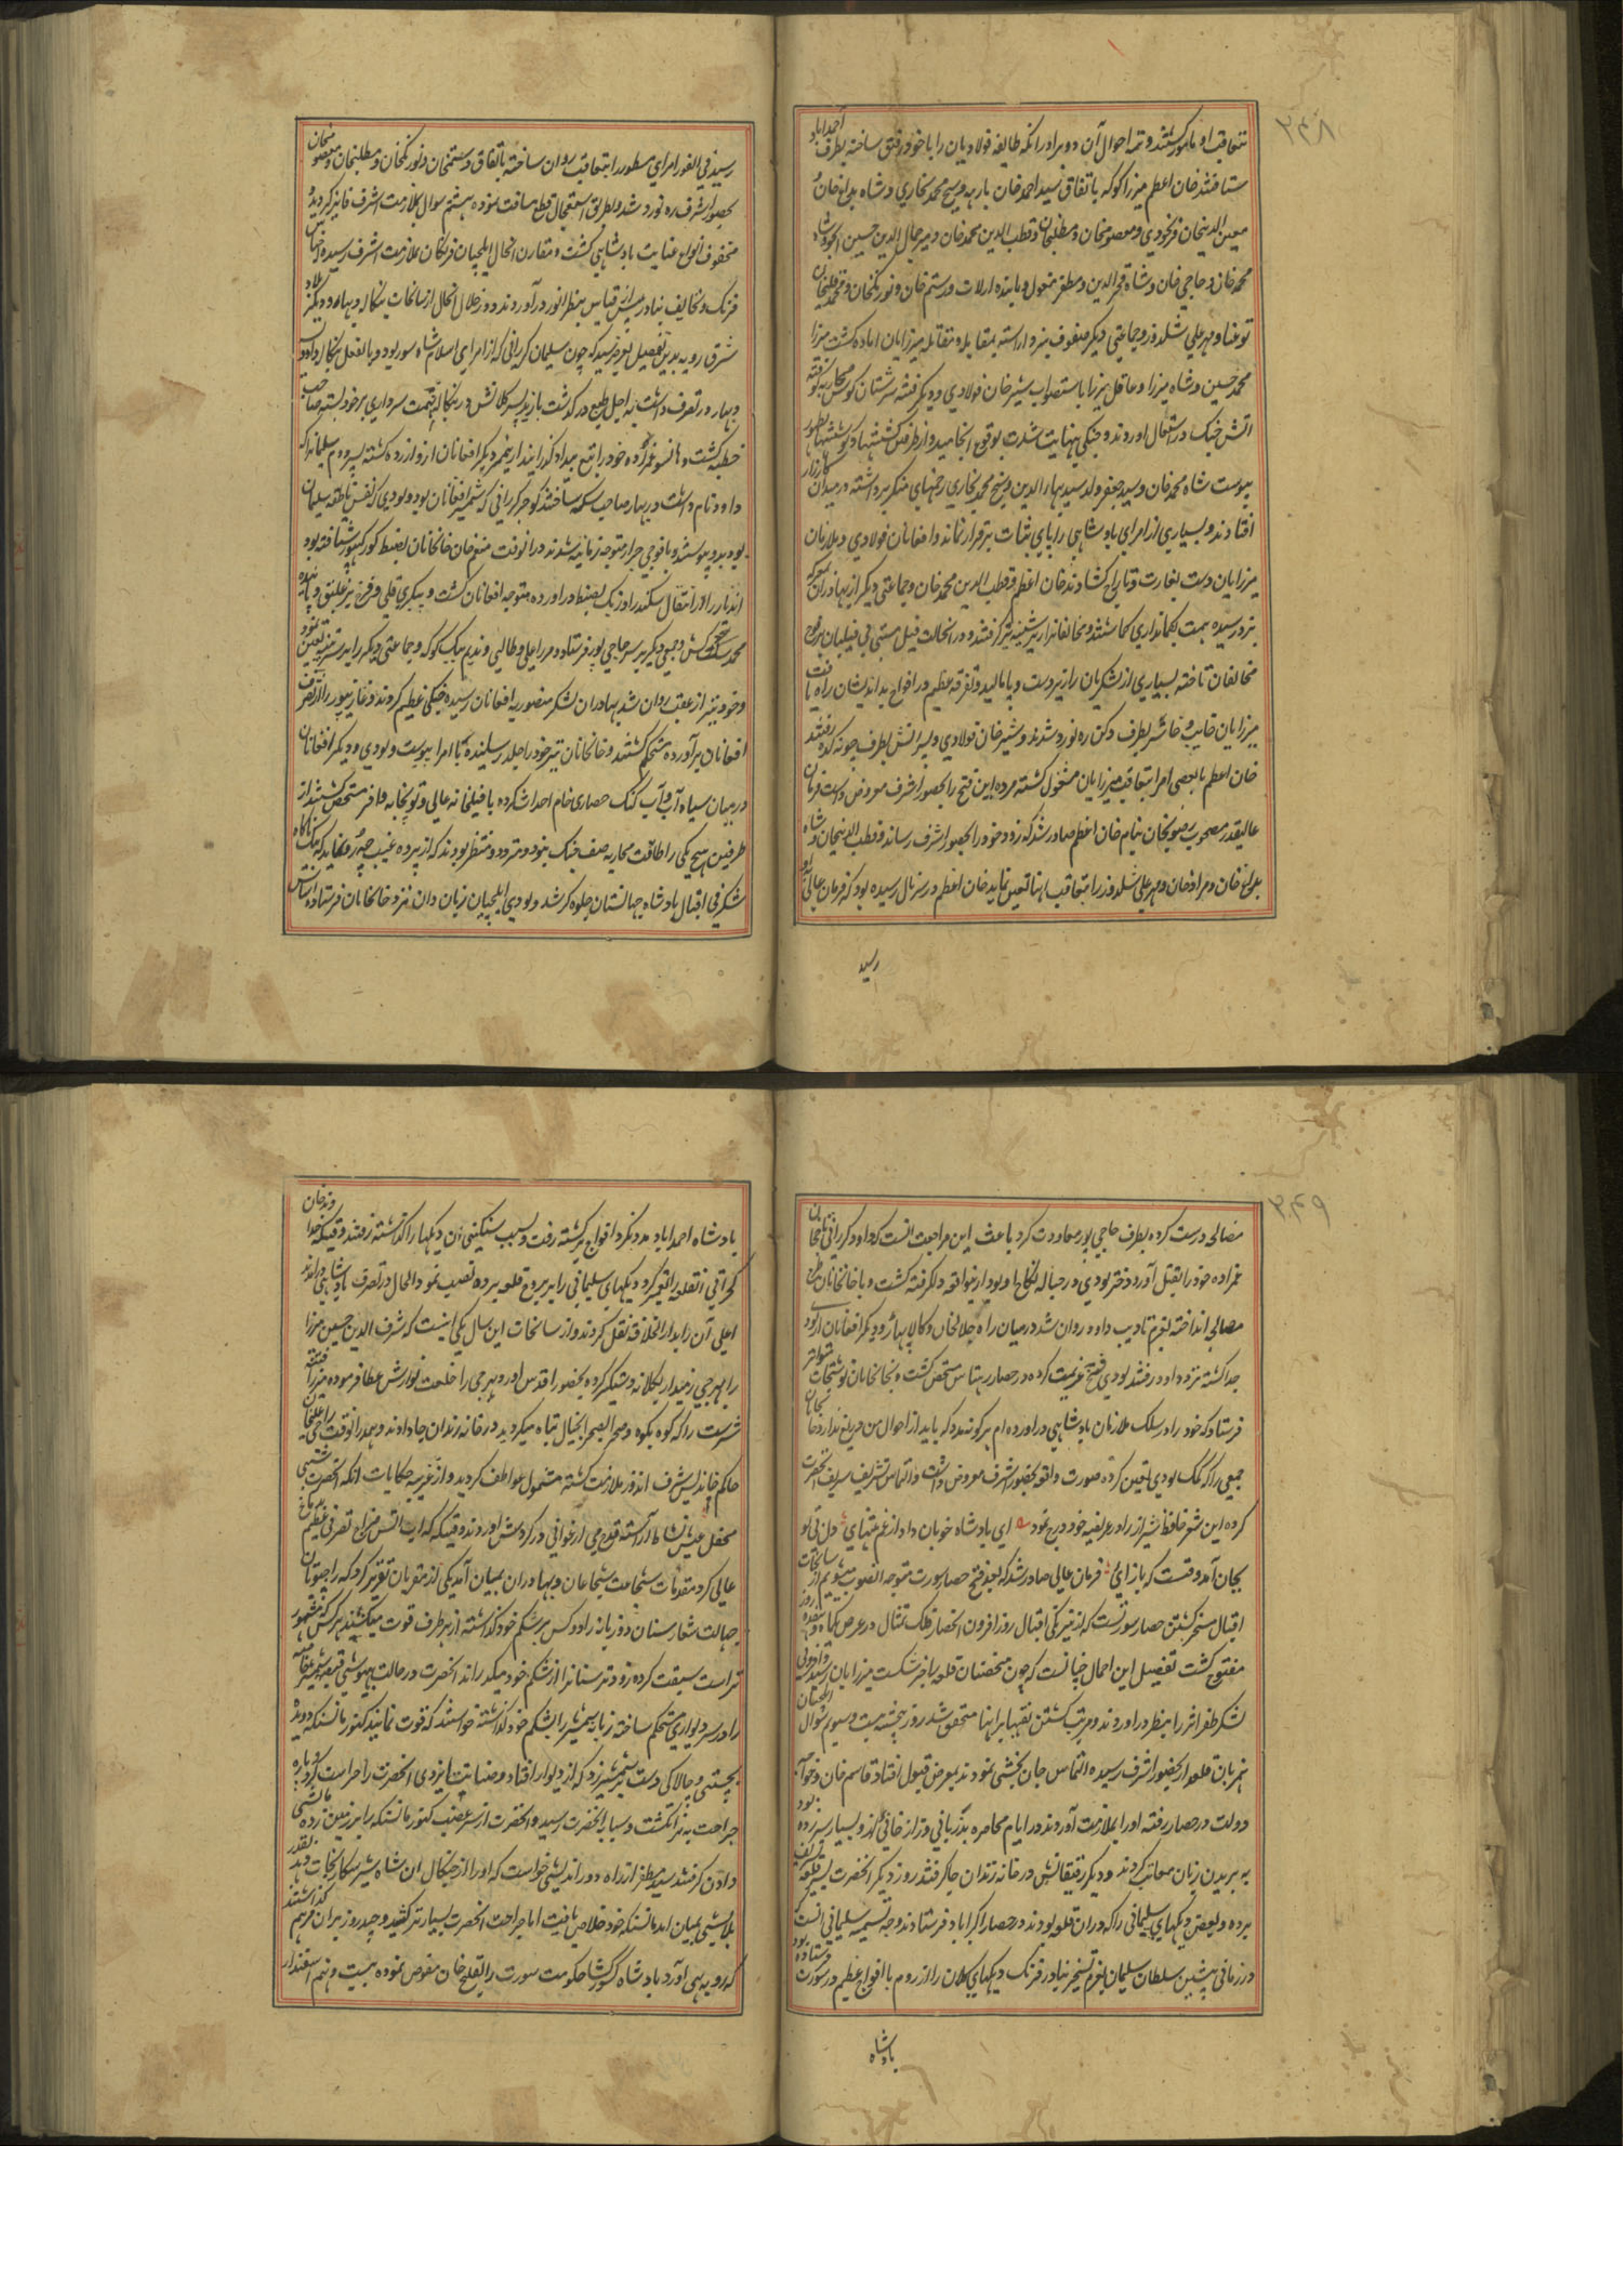 ۳۶۸
بتعاقب او مامور گشتند و تتمه احوال آن دو برادر آنکه طایفه فولادیان را با خود رفیق ساخته بطرف احمداباد
شتافتند خان اعظم میرزا کوکه باتفاق سید احمد خان بارهه و شیخ محمد بخاری و شاه بداغ خان و
معین الدینخان فرنخودی و معصومخان و مطلبخان و قطب الدین محمد خان و میر جمال الدین حسین انجو و شاه
محمد خان و حاجی خان و شاه فخر الدین و مظفر مغول و پاینده ارلات و رستم خان و نورنکخان و محمد قلیخان
توقبا و مهر علی سلدوز و جماعتی دیگر صفوف نبرد آراسته بمقابله و مقاتله میرزایان اماده گشت میرزا
محمد حسین و شاه میرزا و عاقل میرزا باستصواب شیر خان فولادی و دیگر فتنه سرشتان کوس محاربه کوفته
آتش جنگ در اشتعال آوردند و جنگی بنهایت شدت بوقوع انجامید و از طرفین کششها و کوششها بظهور
پیوست شاه محمد خان و سید جعفر ولد سید بهاء الدین و شیخ محمد بخاری زخمهای منکر برداشته در میدان کارزار
افتادند و بسیاری از امرای بادشاهی را پای ثبات برقرار نماند و افغانان فولادی و ملازمان
میرزایان دست بغارت و تاراج کشادند خان اعظم و قطب الدین محمد خان و جماعتی دیگر از بهادران بمعرکه
نبرد رسیده همت بکمانداری گماشتند و مخالفانرا زیر شیبه تیر گرفتند و در انحالت فیل مستی بی فیلبان بر فوج
مخالفان تاخته بسیاری از لشکریان را زیر دست و پا مالید و تفرقه عظیم در افواج بداندیشان راه یافت
میرزایان خایب و خاسر بطرف دکن ره نورد شدند و شیر خان فولادی و پسرانش بطرف جونه کده رفتند
خان اعظم با بعضی امرا بتعاقب میرزایان مشغول گشته مژده این فتح را بحضور اشرف معروض داشت فرمان
عالیقدر مصحوب رضویخان بنام خان اعظم صادر شد که زود خود را بحضور اشرف رساند و قطب الدینخان و شاه
بداغ خان و مراد خان و مهر علی سلدوز را بتعاقب اینها تعین نماید خان اعظم در سرنال رسیده بود که فرمان عالی
رسید
رسید فی الفور امرای مسطور را بتعاقب روان ساخته باتفاق رستمخان و نورنکخان و مطلبخان و معصومخان
بحضور اشرف ره نورد شد و بطریق استعجال قطع مسافت نموده هشتم شوال بملازمت اشرف فایز گردید و
محفوف انواع عنایت بادشاهی گشت و مقارن انحال ایلچیان فرنکان بملازمت اشرف رسیده اجناس
فرنک و تحایف بنادر بیش از قیاس بنظر انور در آوردند و در خلال انحال از سانحات بنکاله و بهار و دیکر بلاد
شرق رویه بدین تفصیل بعرض رسید که چون سلیمان کررانی که از امرای اسلام شاه سور بود و بالفعل بنکاله و اودیسه
و بهار در تصرف داشت به اجل طبیعی درگذشت بایزید پسر کلانش در بنکاله بتهمت سرداری بر خود بسته صاحب
خطبه گشت و هانسو عمزاده خود را بتیغ بیداد گذرانید از ینمر دیکر افغانان از او آزرده گشته پسر دوم سلیمانرا که
داود نام داشت در بهار صاحب سکه ساختند کوجر کررانی که شمشیر افغانان بود و لودی که نفس ناطقه سلیمان
بود بدو پیوستند و با فوجی جرار متوجه زمانیه شدند در انوقت منعم خان خانخانان بضبط گورکهپور شتافته بود
محمد سخت کش و جمعی دیگر بر سر حاجی پور فرستاد و میرزا علی و طالبی و ندیم بیک کوکه و جماعتی دیگر را بر سر پتنه تعین نمود
و خود نیز از عقب روان شد بهادران لشکر منصور به افغانان رسیده جنگی عظیم کردند و غازیپور را از تصرف
افغانان برآورده مستحکم گشتند و خانخانان نیز خود را جلد رسانیده با امرا پیوست و لودی و دیگر افغانان
در میان سیاه آب و آب کنک حصاری خام احداث کرده با فیلخانه عالی و توپخانه وافر متحصن گشتند از
طرفین هیچ یکی را طاقت محاربه صف جنگ نبود و متردد و منتظر بودند که از پرده غیب چه رو نماید که ناگاه
شگرفی اقبال بادشاه جهانستان جلوه گر شد و لودی ایلچیان زبان دان نزد خانخانان فرستاده اساس
۳۶۹
مصالحه درست کرده بطرف حاجی پور معاودت کرد باعث این مراجعت آنست که داود کررانی
عمزاده خود را بقتل آورد و دختر لودی در حباله نکاح او بود از نیواقعه دلگرفته گشت و با خانخانان طرح
مصالحه انداخته بعزم تادیب داود روان شد درمیان راه جلالخان و کالا پهار و دیگر افغانان از لودی
جدا گشته نزد داود رفتند لودی فسخ عزیمت کرده در حصار رهتاس متحصن گشت و بخانخانان نوشتجات متواتر
فرستاد که خود را در سلک ملازمان بادشاهی در آورده ام هر گونه مددی که باید از احوال من دریغ ندارد خانخانان
جمعی را بکمک لودی تعین کرده صورت واقعه بحضور اشرف معروض داشت و التماس تشریف شریف آنحضرت
کرده این شعر حافظ شیراز را در عریضه خود درج نمود ای پادشاه خوبان داد از غم تنهایی دل بی تو
بجان آمد وقتست که باز ایی فرمان عالی صادر شد که بعد فتح حصار سورت متوجه انصوب میشویم از سانحات
اقبال مسخر گشتن حصار سورتست که از نیرنگی اقبال روز افزون انحصار فلک تمثال در عرض یکماه و هفده روز
مفتوح گشت تفصیل این اجمال چنانست که چون متحصنان قلعه را خبر شکست میرزایان رسید
لشکر ظفر اثر را بنظر در آوردند و مرتب گشتن نقبها برانها متحقق شد روز پنجشنبه بیست و سیوم شوال
همزبان قلعه بحضور اشرف رسیده التماس جان بخشی نمودند بعرض قبول افتاد قاسم خان و خواجه
دولت در حصار رفته او را بملازمت آوردند در ایام محاصره بدزبانی و ژاژخائی بسیار سر زده بود
به بریدن زبان معاتب کردند و دیگر رفیقانش در خانه زندان جا گرفتند روز دیگر آنحضرت بسیر قلعه تشریف
برده و بعضی دیگهای سلیمانی را که در ان قلعه بودند در حصار اکراباد فرستادند وجه تسمیه سلیمانی انست که
در زمانی پیشین سلطان سلیمان بعزم تسخیر بنادر فرنگ دیگهای کلان را از روم با افواج عظیم در سورت فرستاده بود
بادشاه
بادشاه احمداباد مدد نکرد افواج برگشته رفت و بسبب سنگینی ان دیگها را گذاشته رفتند وقتیکه خداوند خان
گجراتی انقلعه را تعمیر کرد دیگهای سلیمانی را بر بروج قلعه برده نصب نمود و الحال در تصرف بادشاهی در آمدند
اعلی آن را بدار الخلافه نقل کردند و از سانحات این سال یکی اینست که شرف الدین حسین میرزا
را بهرجی زمیندار بکلانه دستگیر کرده بحضور اقدس آورد بهرجی را خلعت نوازش عطا فرموده میرزا فتنه
سرشت را که کوه بکوه و صحرا بصحرا بخیال تباه میگردید در خانه زندان جا دادند و همدرانوقت راجه علیخان
حاکم خاندیس شرف اندوز ملازمت گشته مشمول عواطف گردید و از غریبه حکایات انکه آنحضرت شبی
محفل عیش و نشاط آراسته قدح می ارغوانی در گردش آوردند وقتیکه که آن آتش مزاج تصرفی عظیم
عالی کرد مقدمات شجاعت شجاعان و بهادران بمیان آمد یکی از مقربان تقریر کرد که راجپوتان
جهالت شعار سنان دو زبانه را دو کس بر شکم خود گذاشته از هر طرف قوت میکنند هر کس که متهور
تر است سبقت کرده زود تر سنانرا از شکم خود میگذراند آنحضرت در حالت بیهوشی قبضه شمشیر خاصه
را در سر دیواری مستحکم ساخته زبانه شمشیر را بشکم خود گذاشته خواستند که قوت نمایند کنور مانسنکه دویده
بچستی و چالاکی دست بر شمشیر زد که از دیوار افتاد و عنایت ایزدی آنحضرت را حراست کرد پاره
جراحت به نر انگشت و سبابه آنحضرت رسید و آنحضرت از سر غضب کنور مانسنکه را بر زمین زده مالشی
دادن گرفتند سید مظفر از راه دور اندیشی خواست که او را از چنگال ان شاه شیر شکار نجات دهد بقدر
تلاشی بمیان آمد مانسنکه خود خلاص یافت اما جراحت آنحضرت بسیار تر کشید و چند روز بران مرهم گذاشتند
که رو به بهی آورد بادشاه کشور گشا حکومت سورت را بقلیج خان مفوض نموده بیست و نهم اسفندار